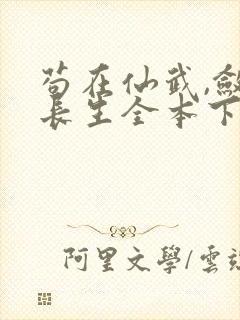 苟在仙武,斂
長生全本下
阿里文學/雲